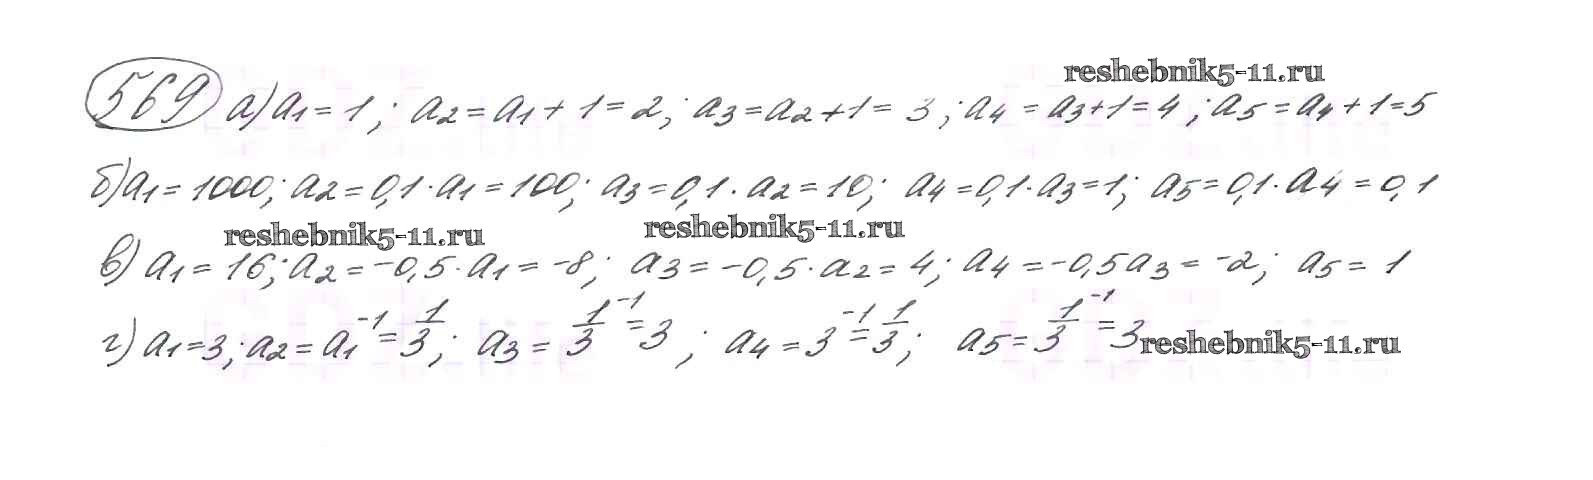 reshebnik5-11.ru
569 а) a₁ = 1; a₂ = a₁ + 1 = 2; a₃ = a₂ + 1 = 3; a₄ = a₃ + 1 = 4; a₅ = a₄ + 1 = 5
б) a₁ = 1000; a₂ = 0,1 · a₁ = 100; a₃ = 0,1 · a₂ = 10; a₄ = 0,1 · a₃ = 1; a₅ = 0,1 · a₄ = 0,1
reshebnik5-11.ru reshebnik5-11.ru
в) a₁ = 16; a₂ = -0,5 · a₁ = -8; a₃ = -0,5 · a₂ = 4; a₄ = -0,5a₃ = -2; a₅ = 1
г) a₁ = 3; a₂ = a₁⁻¹ = 1/3; a₃ = 1/3⁻¹ = 3; a₄ = 3⁻¹ = 1/3; a₅ = 1/3⁻¹ = 3 reshebnik5-11.ru